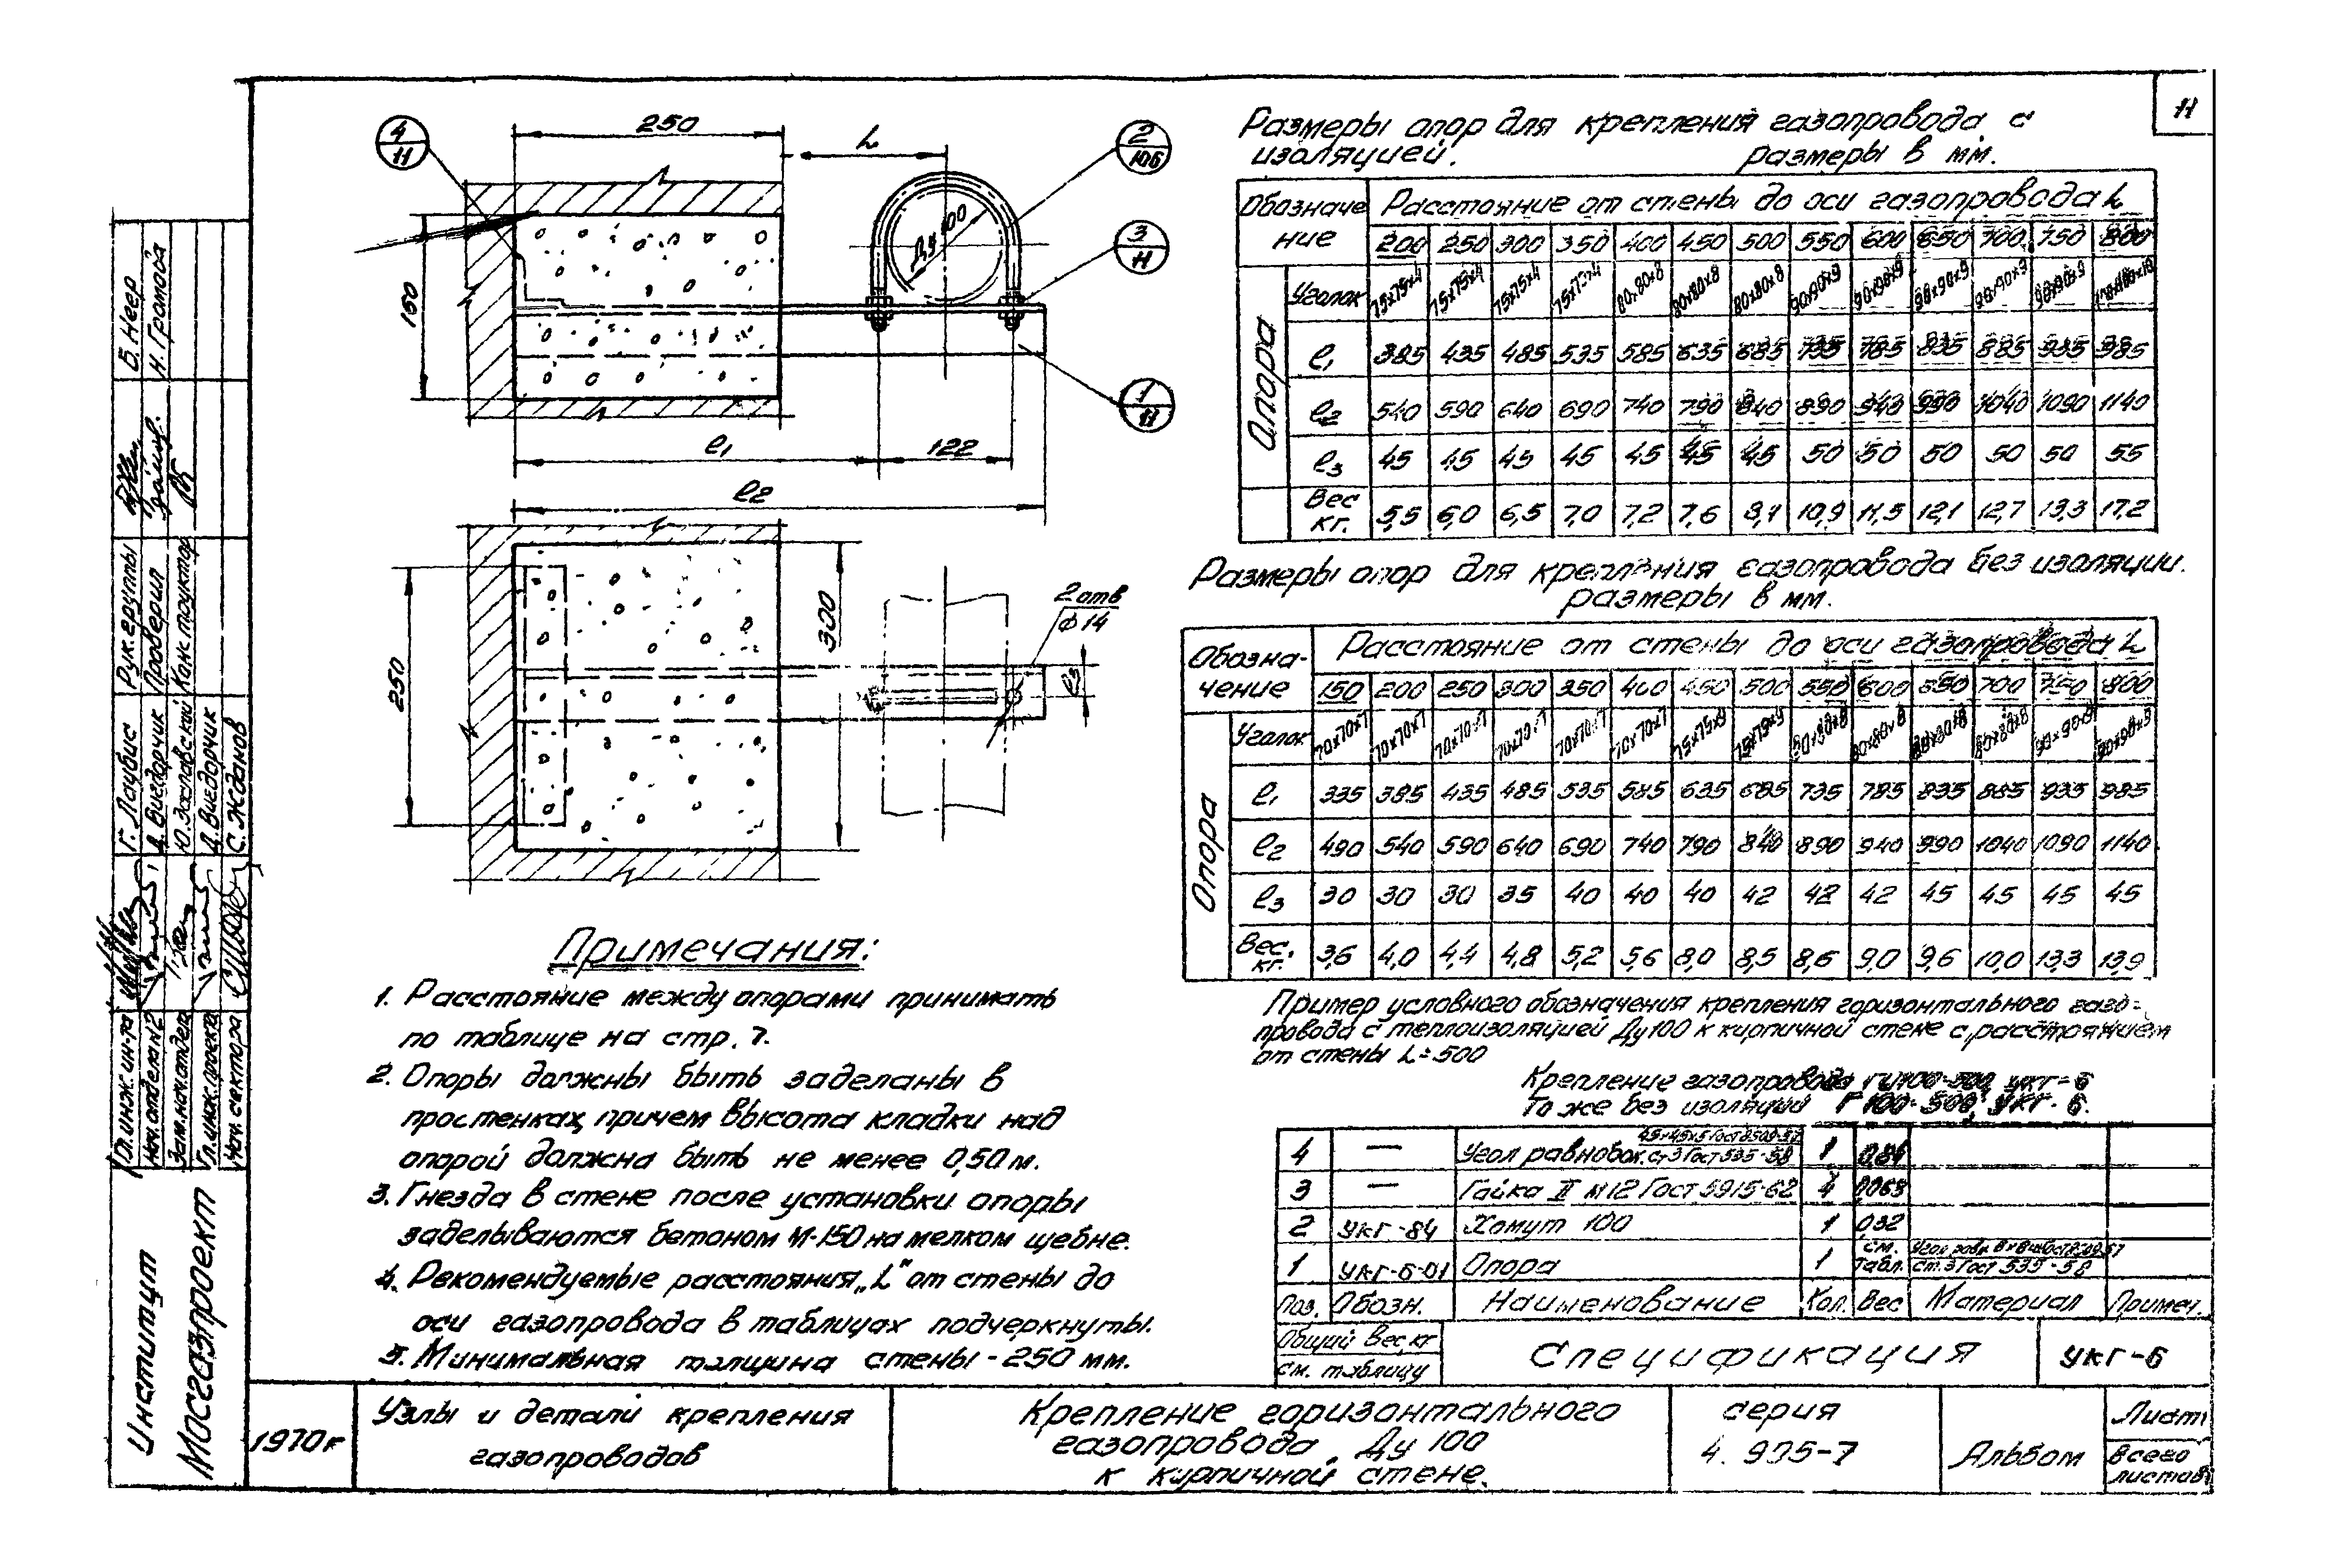 11
4
11
250
L
2
106
3
11
Ду 100
160
1
11
l1
122
l2
250
300
2 отв
Ф 14
l3
Размеры опор для крепления газопровода с
изоляцией.
размеры в мм.
Обозначение
Расстояние от стены до оси газопровода L
200 250 300 350 400 450 500 550 600 650 700 750 800
Опора
Уголок 75x75x4 75x75x4 75x75x4 75x75x4 80x80x8 80x80x8 80x80x8 90x90x9 90x90x9 90x90x9 90x90x9 90x90x9
l1 385 435 485 535 585 635 685 735 785 835 885 935 985
l2 540 590 640 690 740 790 840 890 940 990 1040 1090 1140
l3 45 45 45 45 45 45 45 50 50 50 50 50 55
Вес кг. 5,5 6,0 6,5 7,0 7,2 7,6 8,1 10,9 11,5 12,1 12,7 13,3 17,2
Размеры опор для крепления газопровода без изоляции.
размеры в мм.
Обозна-
чение
Расстояние от стены до оси газопровода L
150 200 250 300 350 400 450 500 550 600 650 700 750 800
Опора
Уголок 70x70x7 70x70x7 70x70x7 70x70x7 70x70x7 70x70x7 75x75x9 75x75x9 80x80x8 80x80x8 80x80x8 80x80x8 90x90x9 90x90x9
l1 335 385 435 485 535 585 635 685 735 785 835 885 935 985
l2 490 540 590 640 690 740 790 840 890 940 990 1040 1090 1140
l3 30 30 30 35 40 40 40 42 42 42 45 45 45 45
Вес. кг. 3,6 4,0 4,4 4,8 5,2 5,6 8,0 8,5 8,6 9,0 9,6 10,0 13,3 13,9
Примечания:
1. Расстояние между опорами принимать
по таблице на стр. 7.
2. Опоры должны быть заделаны в
простенках, причем высота кладки над
опорой должна быть не менее 0,50 м.
3. Гнезда в стене после установки опоры
заделываются бетоном М-150 на мелком щебне.
4. Рекомендуемые расстояния „L" от стены до
оси газопровода в таблицах подчеркнуты.
5. Минимальная толщина стены - 250 мм.
Пример условного обозначения крепления горизонтального газо-
провода с теплоизоляцией Ду 100 к кирпичной стене с расстоянием
от стены L = 500
Крепление газопровода ГИ100-500, УКГ-6
То же без изоляции Г100-500, УКГ-6.
4 — Угол равнобок. 45x45x5 Гост 8509-57 ст3 Гост 535-58 1 0,84
3 — Гайка II М12 Гост 5915-62 4 0,063
2 УКГ-84 Хомут 100 1 0,32
1 УКГ-6-01 Опора 1 см. табл. Угол равн. ВxВxб Гост 8509-57 ст.3 Гост 535-58
Поз. Обозн. Наименование Кол. Вес Материал Примеч.
Общий вес, кг
см. таблицу
Спецификация
УКГ-6
1970г
Узлы и детали крепления
газопроводов
Крепление горизонтального
газопровода Ду 100
к кирпичной стене.
серия
4. 905-7
Альбом
Лист
всего
листов
Институт
Мосгазпроект
Гл. инж. ин-та Г. Лаубис
Нач. отдела №2 Д. Виедорчик
Зам. нач. отдела Ю. Заславский
Гл. инж. проекта Д. Виедорчик
Нач. сектора С. Жданов
Рук. группы Б. Неер
Проверил Н. Громова
Конструктор